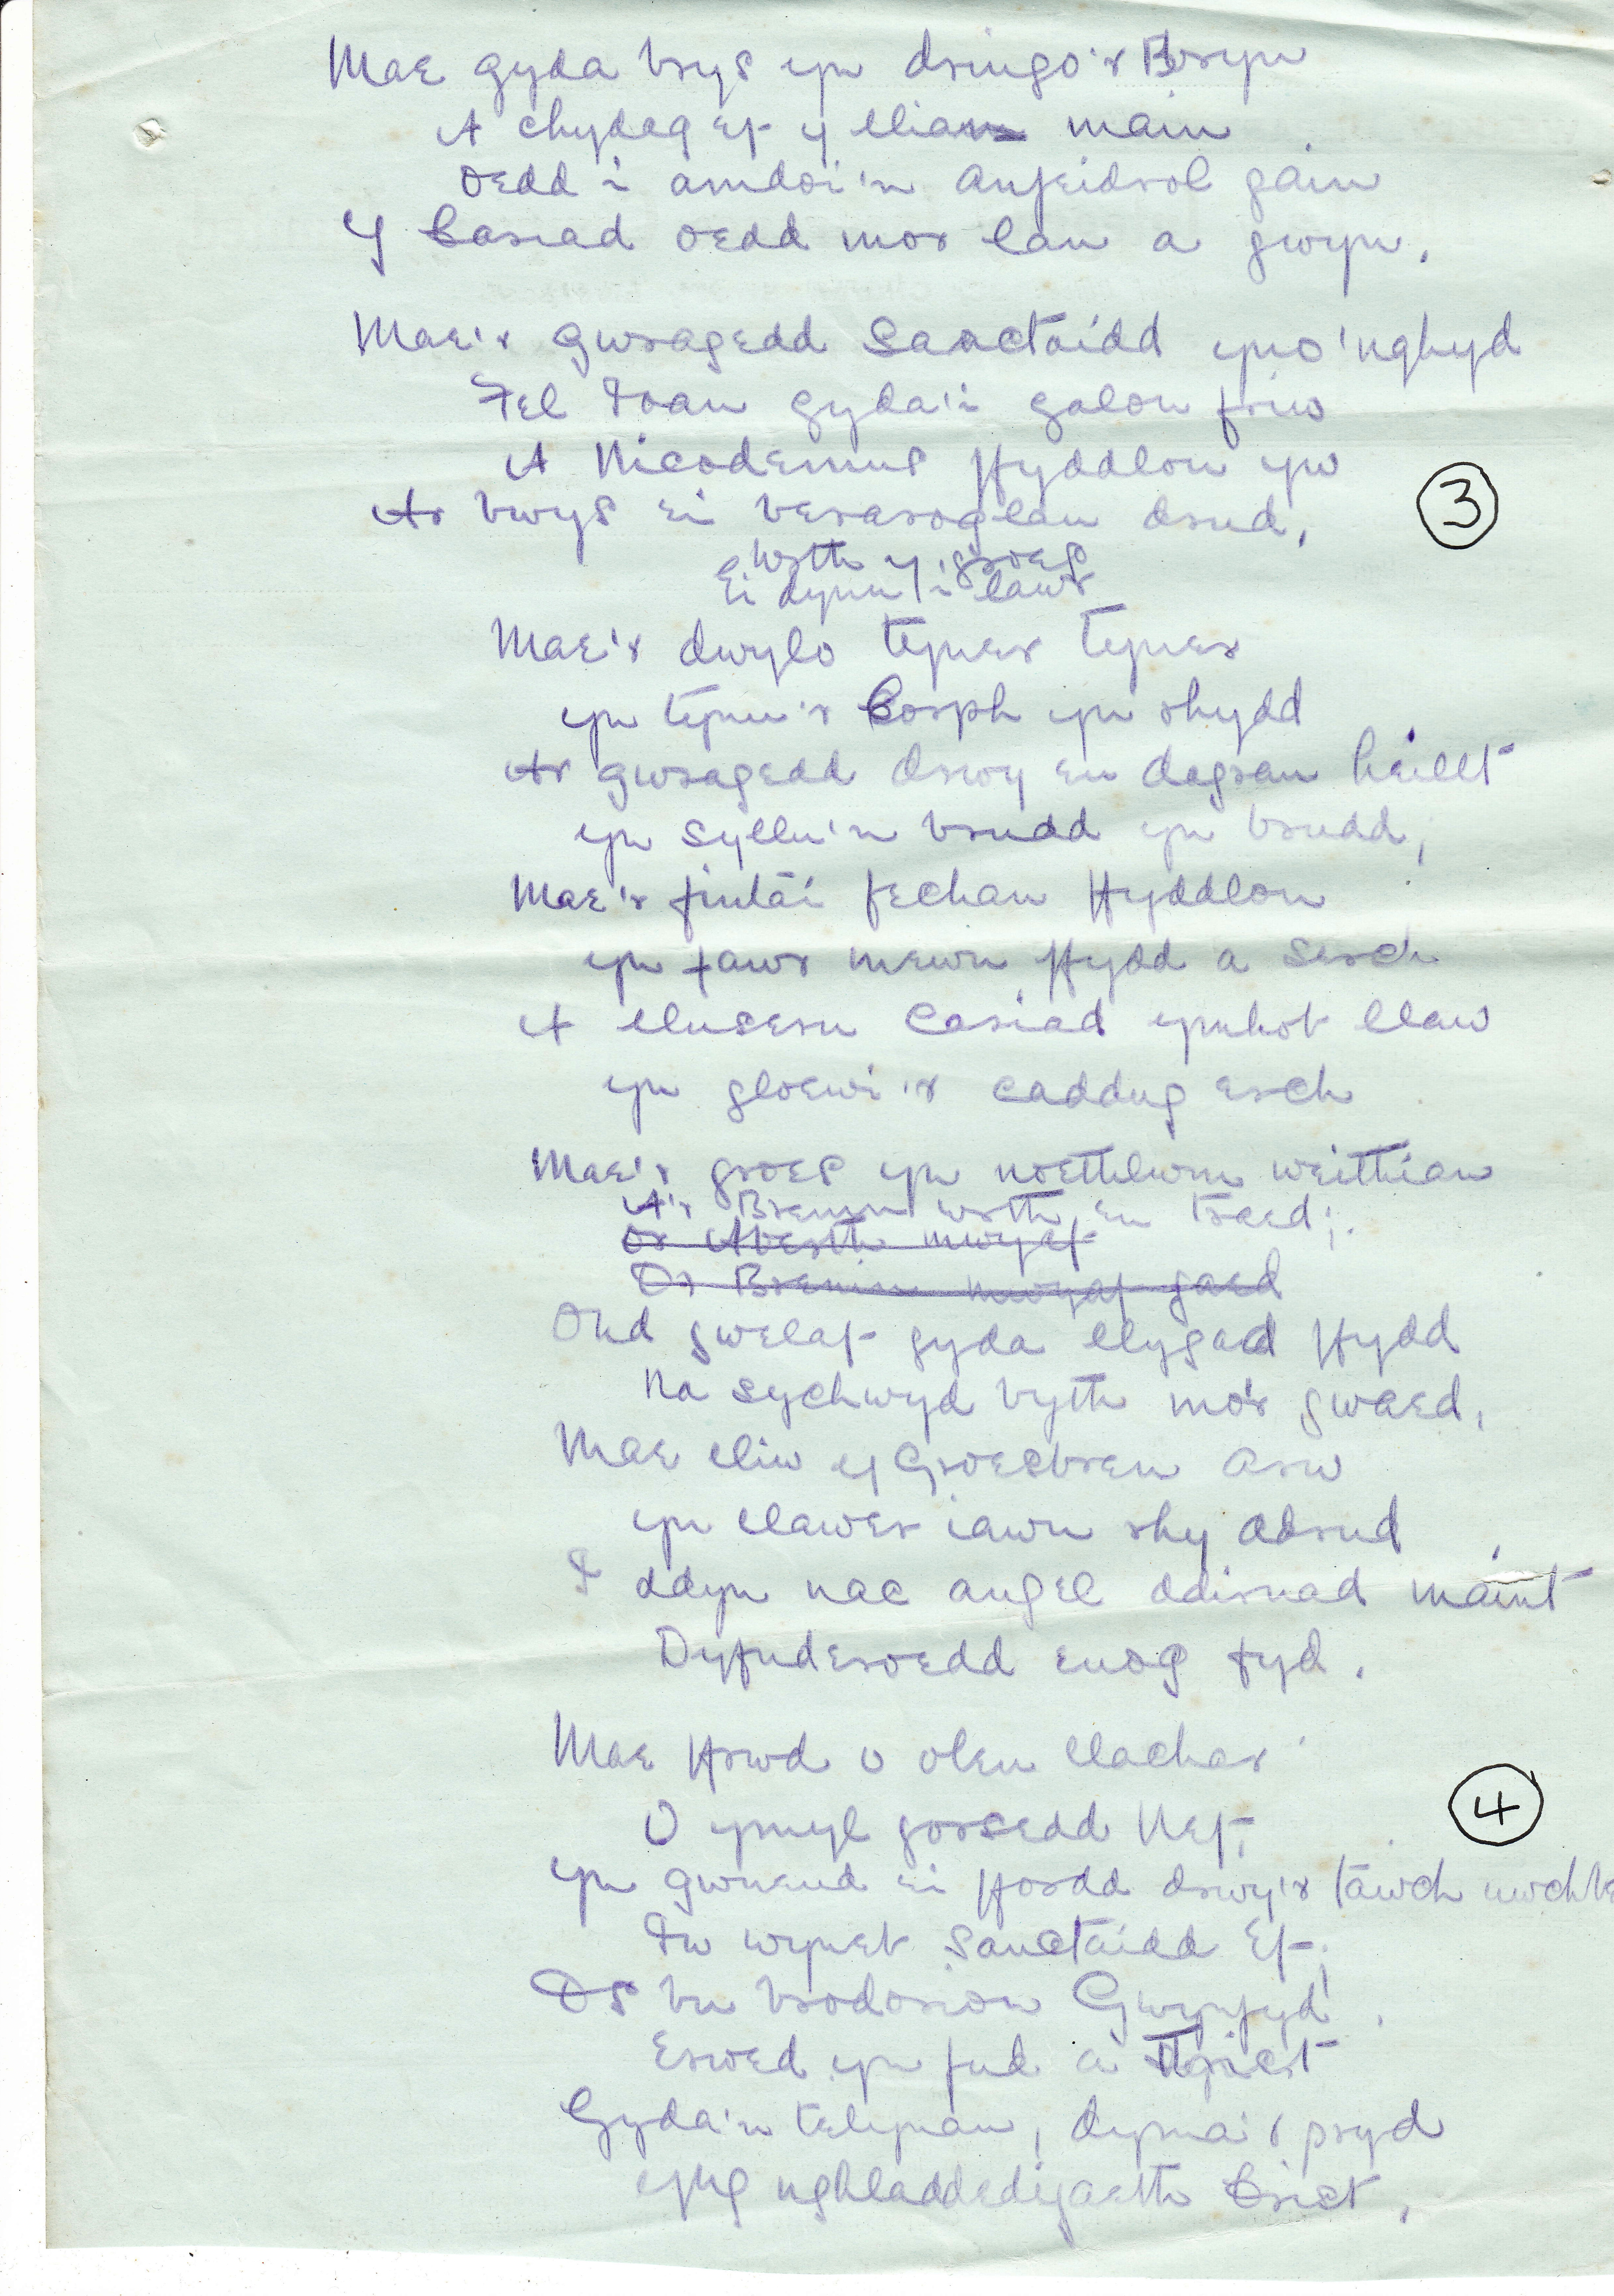 Mae gyda brys yn dringo'r Bryn
A chydag ef y llian main
Oedd i amdoi'n anfeidrol gain
Y Cariad oedd mor lan a gwyn.
Mae'r gwragedd Sanctaidd yno 'nghyd
Fel Ioan gyda'i galon friw
A Nicodemus ffyddlon yw
Ar bwys ei beraroglau drud,
3
Wrth y groes
Ei dynu i lawr
Mae'r dwylo tyner tyner
yn tynu'r Corph yn rhydd
Ar gwragedd drwy eu dagrau heillt
yn syllu'n brudd yn brudd,
Mae'r fintai fechan ffyddlon
yn fawr mewn ffydd a serch
A lluseru Cariad ymhob llaw
yn gloewi'r caddug erch
Mae'r groes yn noethlwm weithian
A'r Brenin wrth eu traed;
Or Aberth mwyaf
Or Brenin mwyaf gaed
Ond gwelaf gyda llygad ffydd
Na sychwyd byth mo'r gwaed,
Mae lliw y Groesbren arw
yn llawer iawn rhy ddrud
I ddyn nac angel ddirnad maint
Dyfnderoedd euog fyd.
Mae ffrwd o oleu llachar
O ymyl gorsedd Nef,
4
yn gwneud ei ffordd drwy'r tawch uwchbe
I'w wyneb Sanctaidd Ef;
Os bu brodorion Gwynfyd
Erioed yn fud a thrist
Gyda'u telynau, dyma'r pryd
yng nghladdedigaeth Crist,